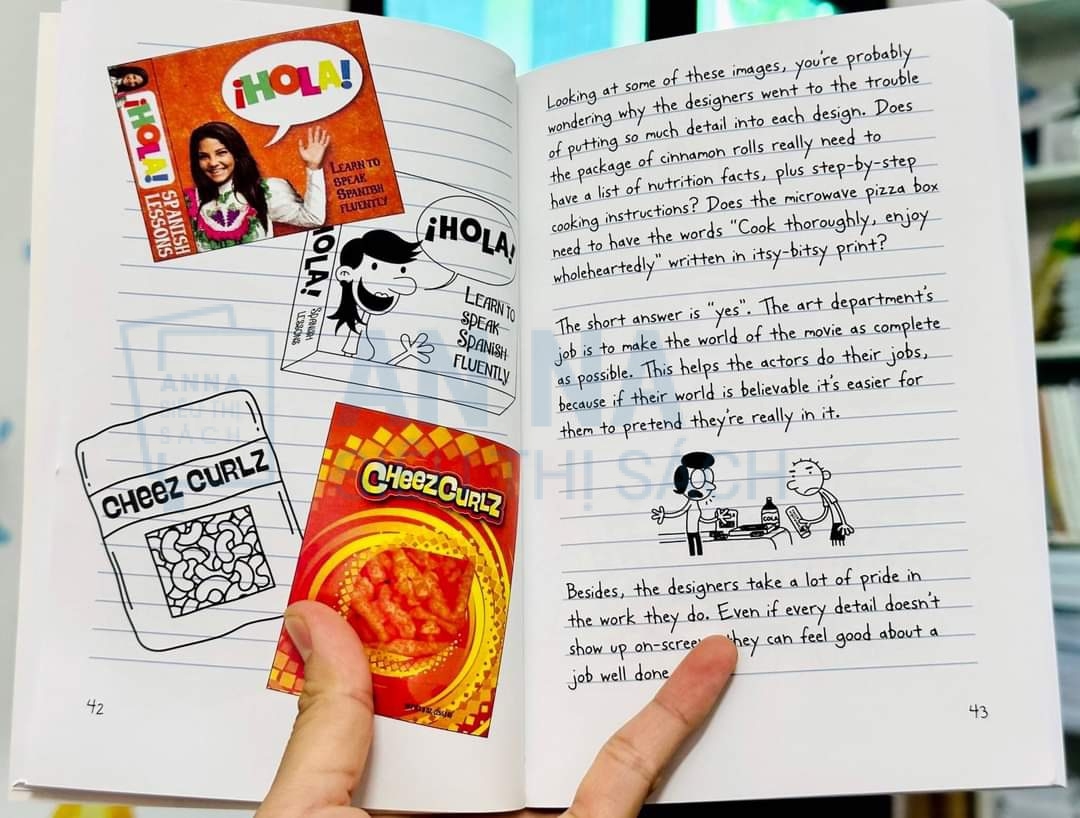 ¡HOLA!
¡HOLA!
SPANISH
LESSONS
LEARN TO
SPEAK
SPANISH
FLUENTLY
¡HOLA!
HOLA!
SPANISH
LESSONS
LEARN TO
SPEAK
SPANISH
FLUENTLY
CHEEZ CURLZ
CHEEZCURLZ
42
Looking at some of these images, you're probably
wondering why the designers went to the trouble
of putting so much detail into each design. Does
the package of cinnamon rolls really need to
have a list of nutrition facts, plus step-by-step
cooking instructions? Does the microwave pizza box
need to have the words "Cook thoroughly, enjoy
wholeheartedly" written in itsy-bitsy print?
The short answer is "yes". The art department's
job is to make the world of the movie as complete
as possible. This helps the actors do their jobs,
because if their world is believable it's easier for
them to pretend they're really in it.
COLA
Besides, the designers take a lot of pride in
the work they do. Even if every detail doesn't
show up on-screen they can feel good about a
job well done
43
ANNA
SIÊU THỊ
SÁCH
AN NA
SIÊU THỊ SÁCH